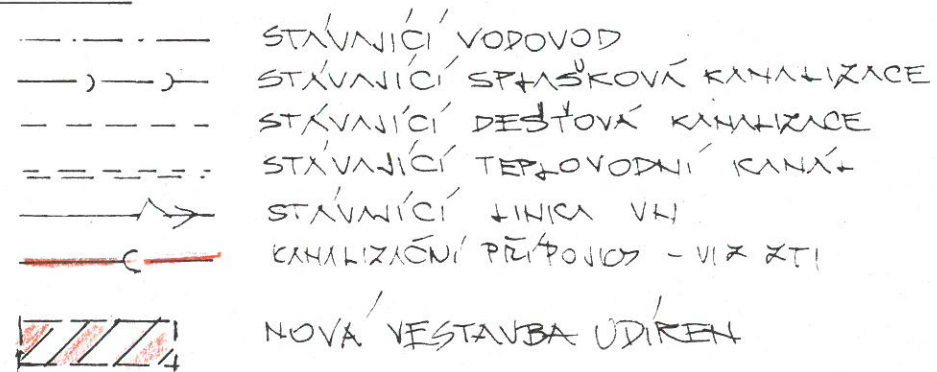 STÁVAJÍCÍ VODOVOD
STÁVAJÍCÍ SPLAŠKOVÁ KANALIZACE
STÁVAJÍCÍ DEŠŤOVÁ KANALIZACE
STÁVAJÍCÍ TEPLOVODNÍ KANÁL
STÁVAJÍCÍ LINKA VN
KANALIZAČNÍ PŘÍPOJKY - VIZ ZTI
NOVÁ VESTAVBA UDÍREN